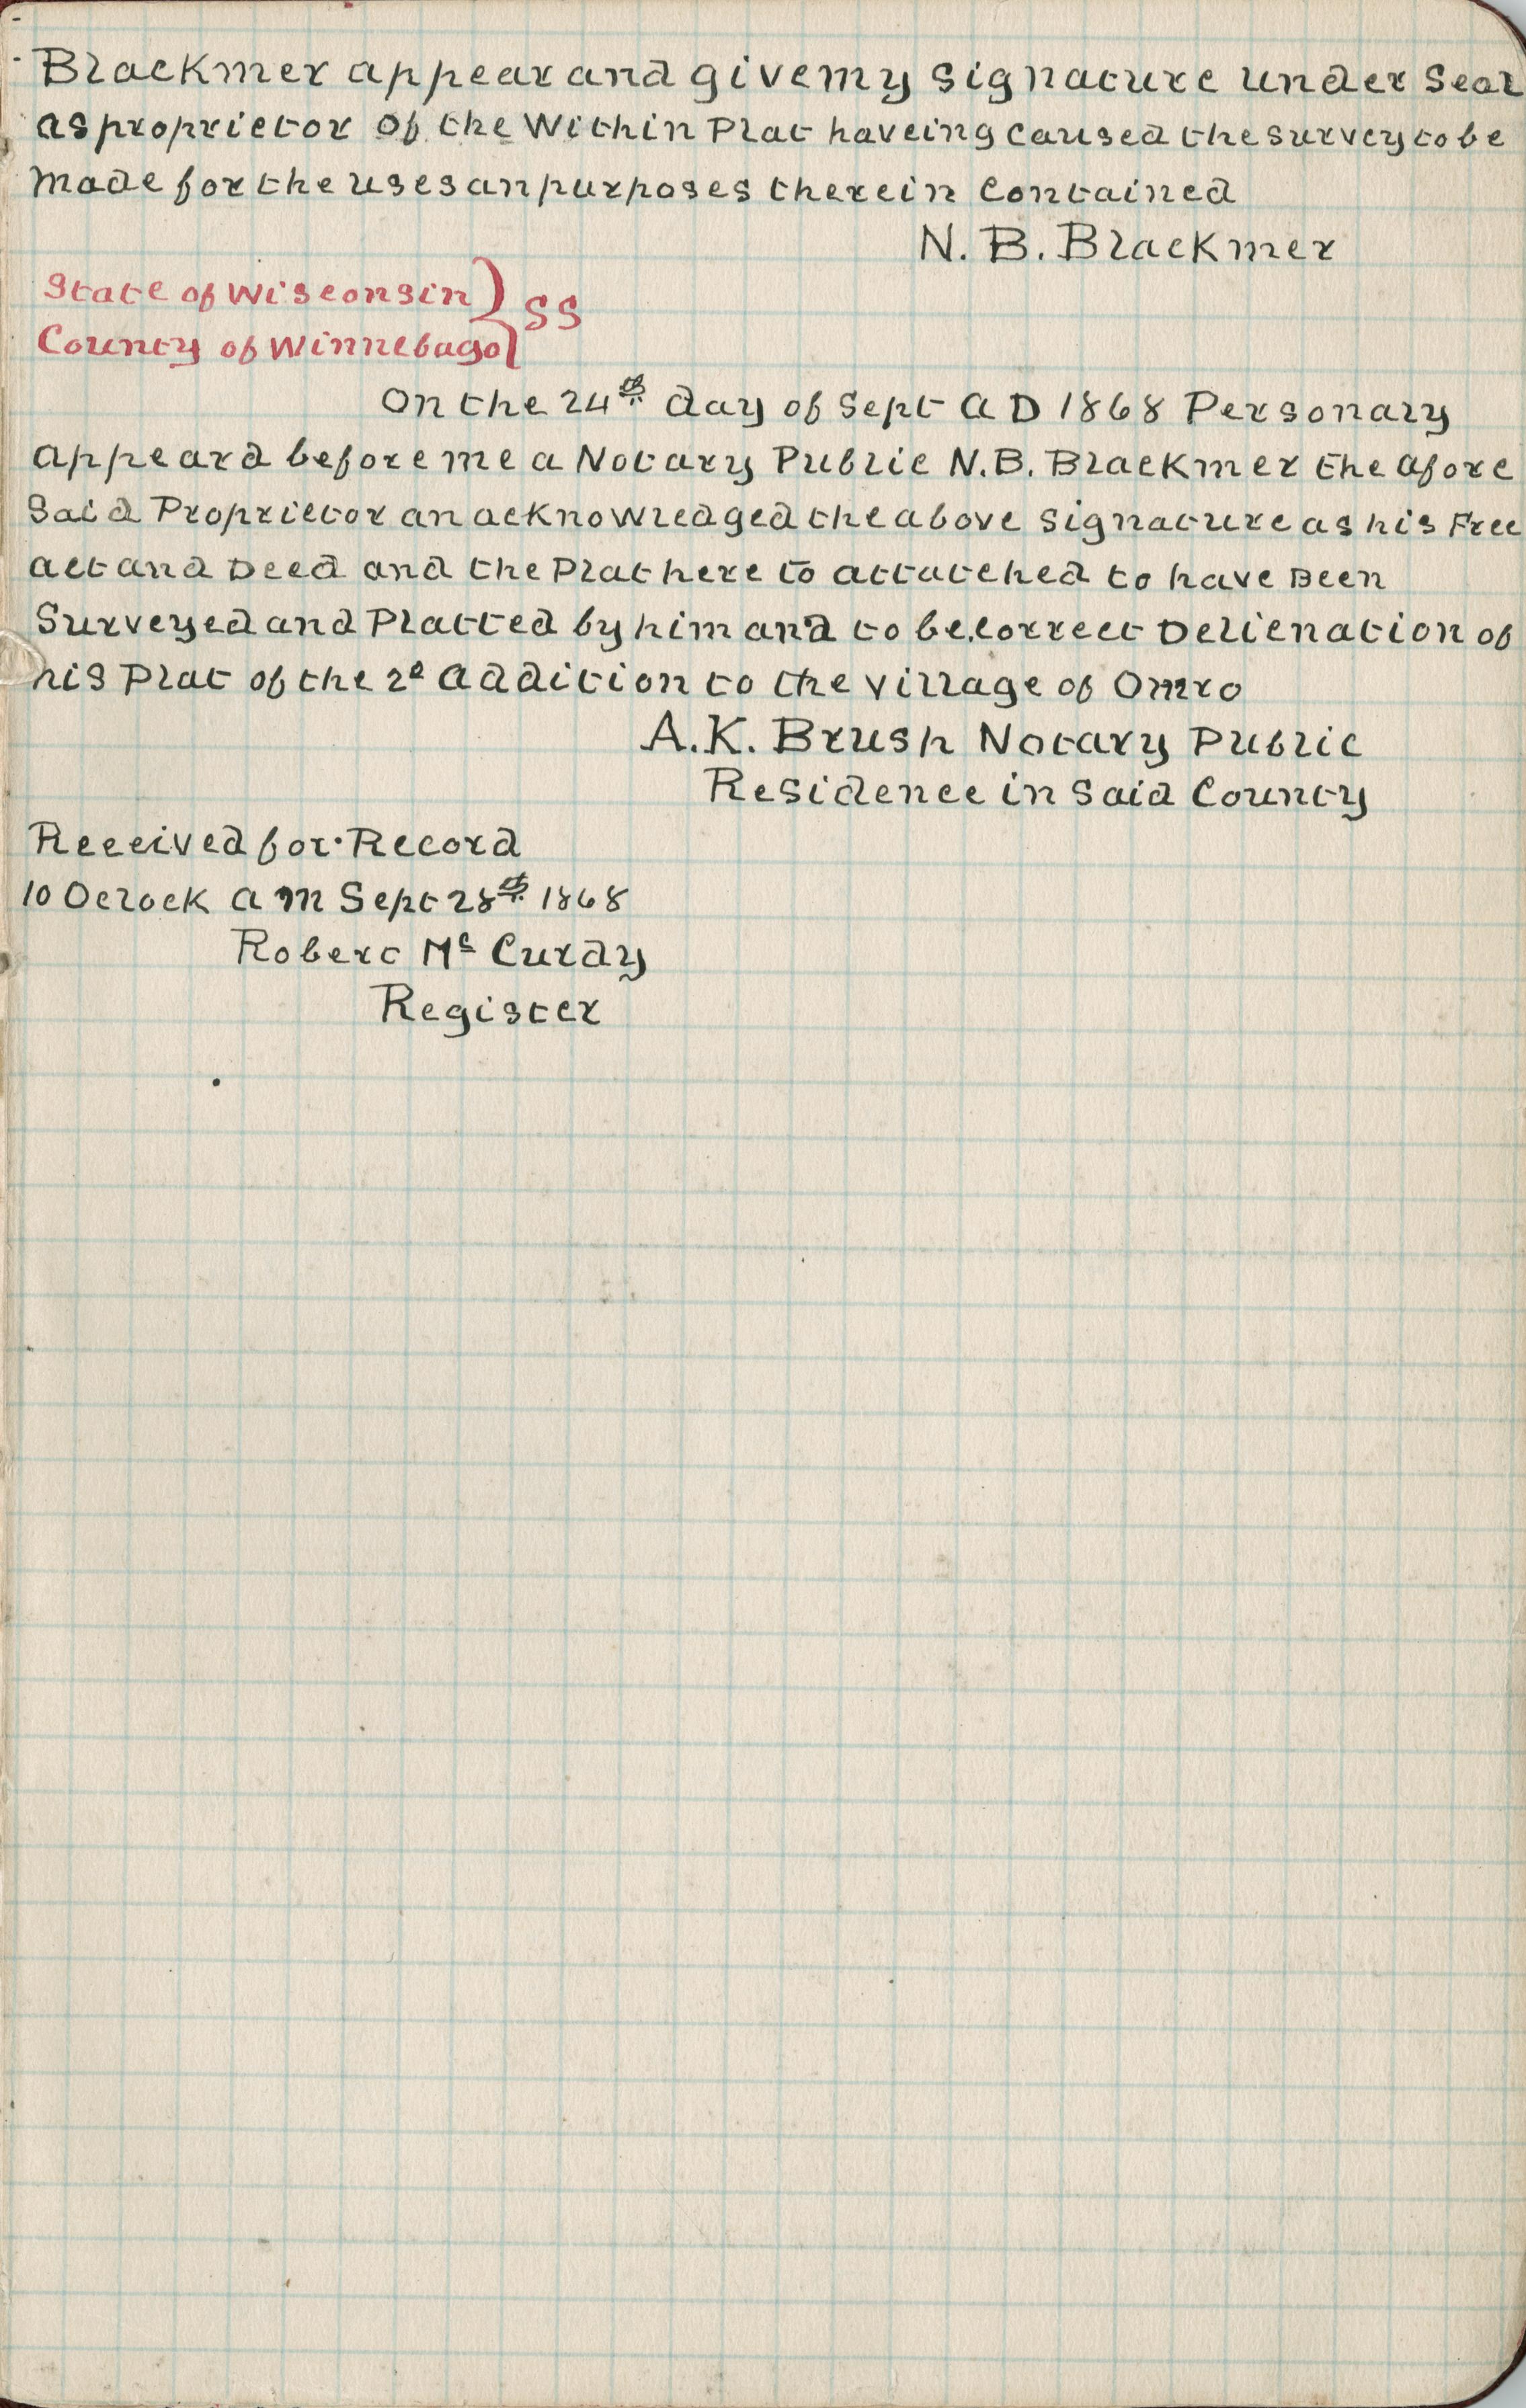 Blackmer appear and give my signature under seal
as proprietor of the Within Plat haveing caused the survey to be
made for the uses an purposes therein contained
N. B. Blackmer
State of Wisconsin } SS
County of Winnebago
On the 24th day of Sept A D 1868 Personaly
appeard before me a Notary Public N. B. Blackmer the afore
Said Proprietor an acknowledged the above signature as his Free
act and Deed and the Plat here to attatched to have Been
Surveyed and Platted by him and to be correct Delienation of
his Plat of the 2d addition to the village of Omro
A. K. Brush Notary Public
Residence in Said County
Received for Record
10 Oclock a m Sept 28th 1868
Robert Mc Curdy
Register